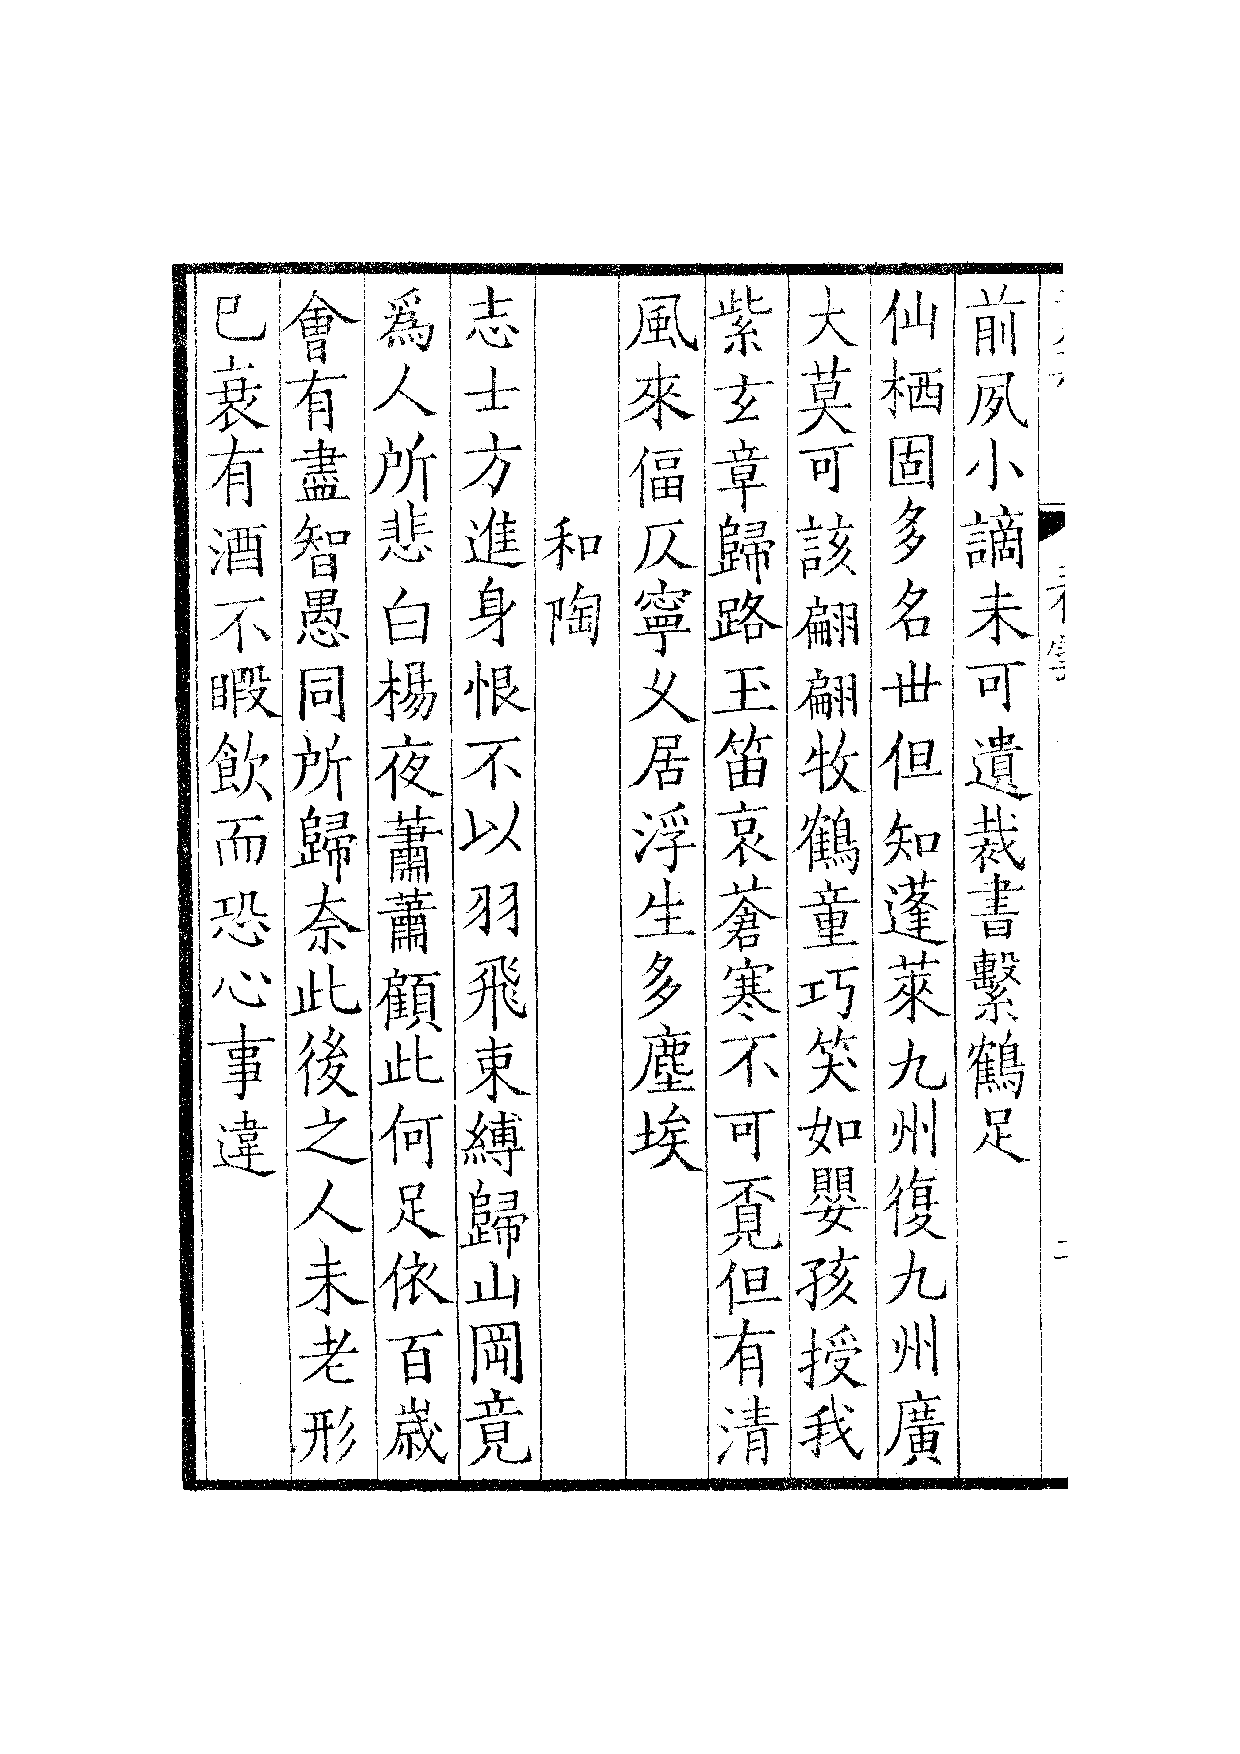 前夙小謫未可遺裁書繫鶴足
仙栖固多名丗但知蓬萊九州復九州廣
大莫可該翩翩牧鶴童巧笑如嬰孩授我
紫玄章歸路玉笛哀蒼寒不可覔但有清
風來偪仄寧乆居浮生多塵埃
和陶
志士方進身恨不以羽飛束縛歸山岡竟
爲人所悲白楊夜蕭蕭顧此何足依百歲
會有盡智愚同所歸奈此後之人未老形
巳衰有酒不暇飲而恐心事違